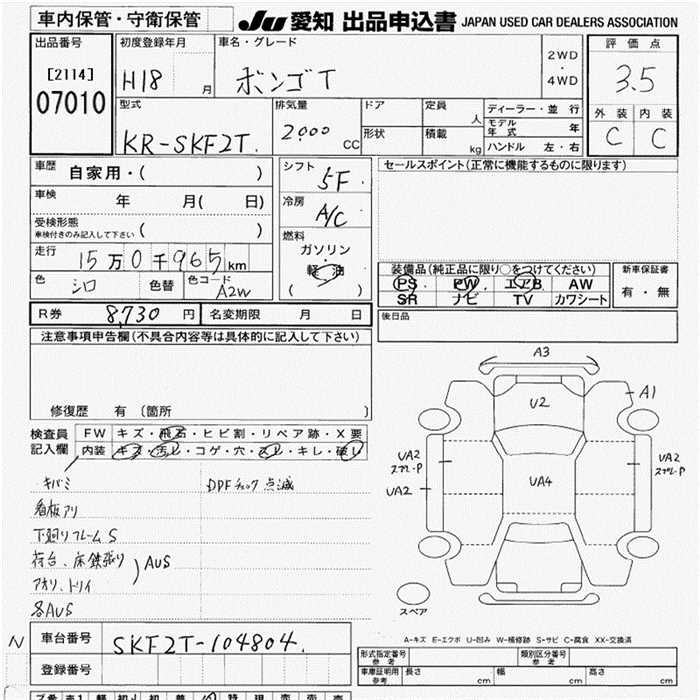 車内保管・守衛保管
JU 愛知 出品申込書 JAPAN USED CAR DEALERS ASSOCIATION
出品番号
[2114]
07010
初度登録年月
H18 月
車名・グレード
ボンゴT
2WD
・
4WD
評価点
3.5
外装 内装
C C
型式
KR-SKF2T.
排気量
2000 CC
ドア
形状
定員 人
積載 kg
ディーラー・並行
モデル年式 年
ハンドル 左・右
車歴 自家用・( )
車検 年 月( 日)
受検形態
車検付きのみ記入して下さい ( )
走行 15万0千965 km
色 シロ 色替 色コード A2W
シフト 5F
冷房 A/C
燃料
ガソリン・
軽油
( )
セールスポイント(正常に機能するものに限ります)
装備品(純正品に限り○をつけてください)
PS PW エアB AW
SR ナビ TV カワシート
新車保証書
有・無
R券 8,730 円 名変期限 月 日
後日品
注意事項申告欄(不具合内容等は具体的に記入して下さい)
修復歴 有 〔箇所 〕
検査員記入欄
FW キズ・飛石・ヒビ割・リペア跡・X要
内装 キズ・汚レ・コゲ・穴・スレ・キレ・破レ
キバミ
DPFチェック点滅
看板アリ
下廻リフレームS
荷台、床鉄張り
アオリ、トリイ
AUS
各AUS
A3
U2
A1
UA2
スプレ-P
UA2
UA4
UA2
スプレ-P
スペア
A-キズ E-エクボ U-凹み W-補修跡 S-サビ C-腐食 XX-交換済
N
車台番号 SKF2T-104804.
登録番号
形式指定番号
参考
類別区分番号
参考
車庫証明用
参考
長さ cm 幅 cm 高さ cm